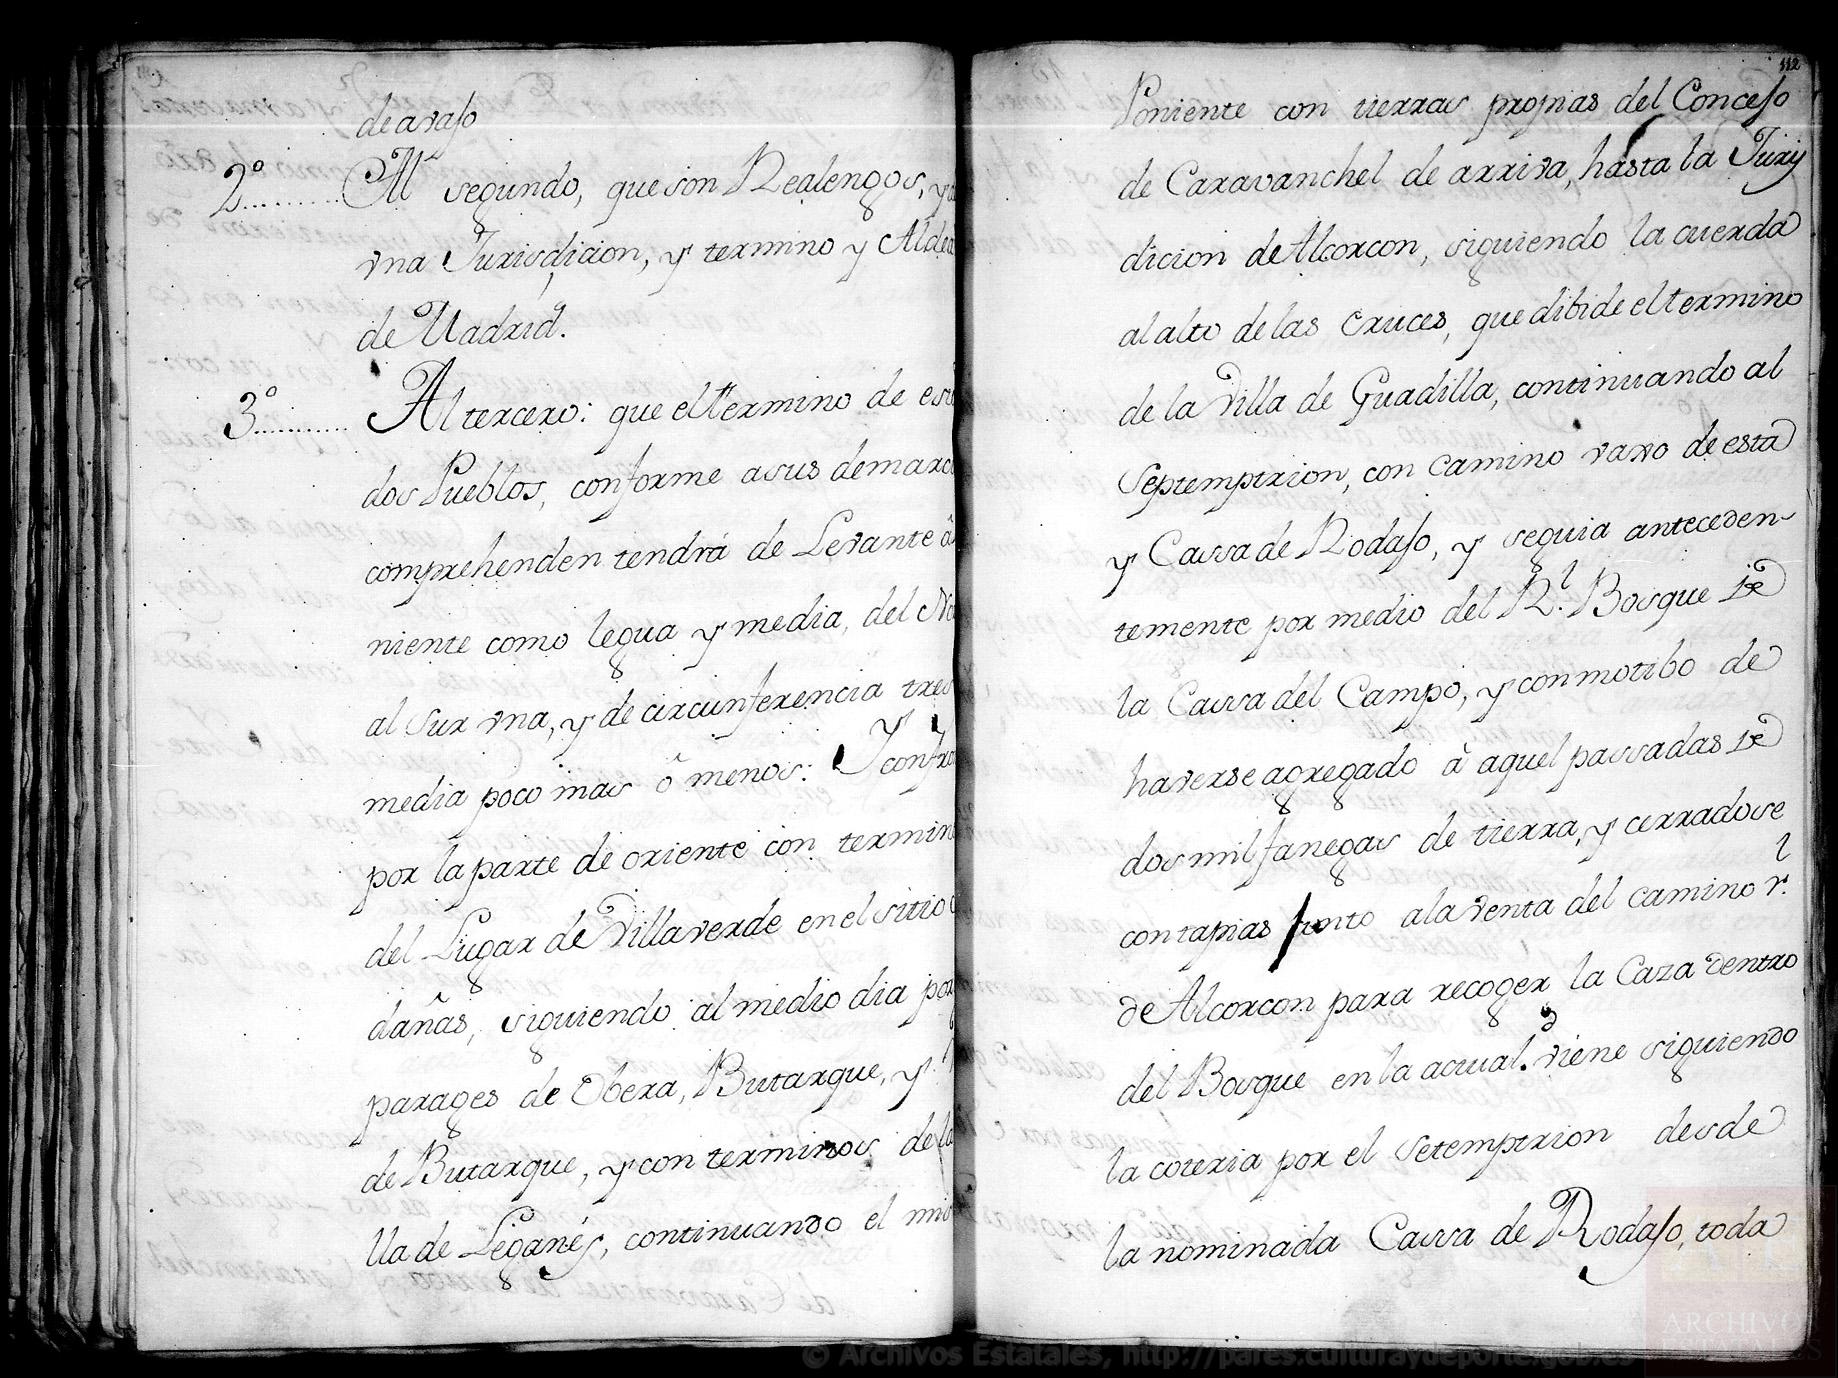 de avajo
2º.......... Al segundo, que son Realengos, y de
vna Jurisdicion, y termino y Aldea
de Madrid.
3º.......... Al tercero: que el termino de esto
dos Pueblos, conforme a sus demarc
comprehenden tendrá de Levante â
niente como legua y media, del No
al Sur vna, y de circunferencia tres
media poco mas ô menos: Y confro
por la parte de oriente con termin
del Lugar de Villaverde en el sitio
dañas, siguiendo al medio dia por
parages de Obera, Butarque, y
de Butarque, y con terminos de la
lla de Leganés, continuando el mis
112
Poniente con tierras propias del Concejo
de Caravanchel de arriva, hasta la Jury
dicion de Alcorcon, siguiendo la cuerda
al alto de las Cruces, que dibide el termino
de la Villa de Guadilla, continuando al
Septemptrion, con camino vaxo de esta
y Cassa de Rodajo, y seguia anteceden-
temente por medio del Rl. Bosque de
la Cassa del Campo, y con motibo de
haverse agregado à aquel passadas de
dos mil fanegas de tierra, y cerradose
con tapias junto a la venta del camino rl.
de Alcorcon para recoger la Caza dentro
del Bosque en la actual.d viene siguiendo
la coteria por el Setemptrion desde
la nominada Cassa de Rodajo, toda
© Archivos Estatales, http://pares.culturaydeporte.gob.es
ARCHIVOS
ESTATALES